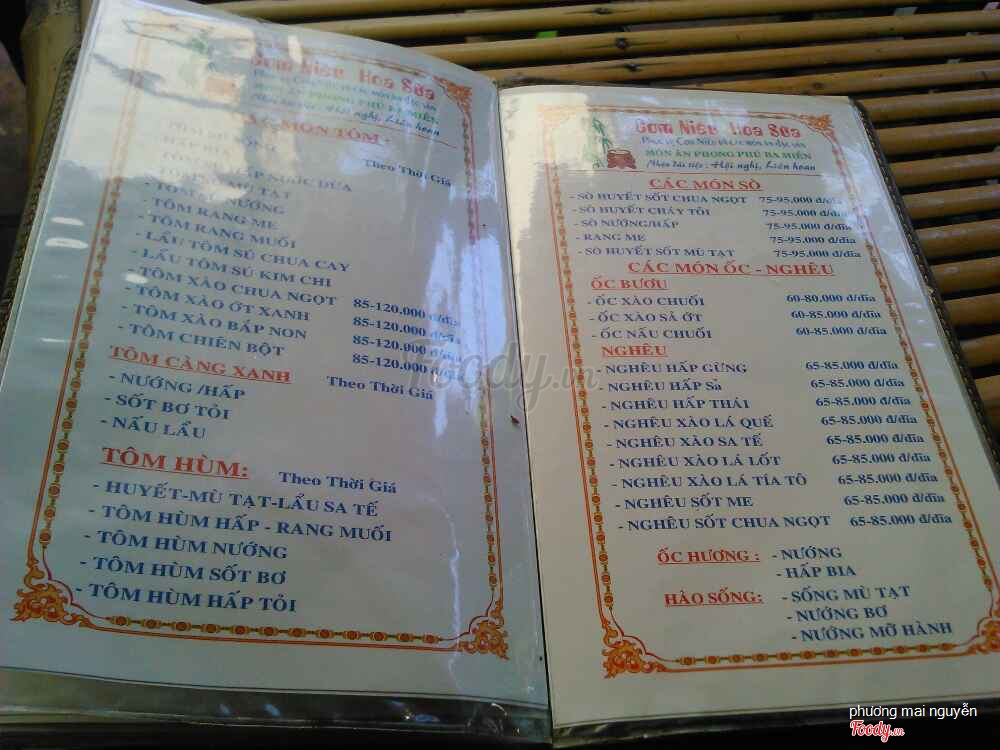 Cơm Niêu Hoa Sữa
MÓN ĂN PHONG PHÚ BA MIỀN
Nhận đặt tiệc: Hội nghị, Liên hoan
MÓN TÔM
Theo Thời Giá
DỪA
MÙ TẠT
NƯỚNG
- TÔM RANG ME
- TÔM RANG MUỐI
- LẨU TÔM SÚ CHUA CAY
- LẨU TÔM SÚ KIM CHI
- TÔM XÀO CHUA NGỌT 85-120.000 đ/dĩa
- TÔM XÀO ỚT XANH 85-120.000 đ/dĩa
- TÔM XÀO BẮP NON 85-120.000 đ/dĩa
- TÔM CHIÊN BỘT 85-120.000 đ/dĩa
TÔM CÀNG XANH Theo Thời Giá
- NƯỚNG /HẤP
- SỐT BƠ TỎI
- NẤU LẨU
TÔM HÙM: Theo Thời Giá
- HUYẾT-MÙ TẠT-LẨU SA TẾ
- TÔM HÙM HẤP - RANG MUỐI
- TÔM HÙM NƯỚNG
- TÔM HÙM SỐT BƠ
- TÔM HÙM HẤP TỎI
Cơm Niêu Hoa Sữa
MÓN ĂN PHONG PHÚ BA MIỀN
Nhận đặt tiệc : Hội nghị, Liên hoan
CÁC MÓN SÒ
- SÒ HUYẾT SỐT CHUA NGỌT 75-95.000 đ/dĩa
- SÒ HUYẾT CHÁY TỎI 75-95.000 đ/dĩa
- SÒ NƯỚNG/HẤP 75-95.000 đ/dĩa
- RANG ME 75-95.000 đ/dĩa
- SÒ HUYẾT SỐT MÙ TẠT 75-95.000 đ/dĩa
CÁC MÓN ỐC - NGHÊU
ỐC BƯƠU
- ỐC XÀO CHUỐI 60-80.000 đ/dĩa
- ỐC XÀO SẢ ỚT 60-85.000 đ/dĩa
- ỐC NẤU CHUỐI 60-85.000 đ/dĩa
NGHÊU
- NGHÊU HẤP GỪNG 65-85.000 đ/dĩa
- NGHÊU HẤP Sả 65-85.000 đ/dĩa
- NGHÊU HẤP THÁI 65-85.000 đ/dĩa
- NGHÊU XÀO LÁ QUẾ 65-85.000 đ/dĩa
- NGHÊU XÀO SA TẾ 65-85.000 đ/dĩa
- NGHÊU XÀO LÁ LỐT 65-85.000 đ/dĩa
- NGHÊU XÀO LÁ TÍA TÔ 65-85.000 đ/dĩa
- NGHÊU SỐT ME 65-85.000 đ/dĩa
- NGHÊU SỐT CHUA NGỌT 65-85.000 đ/dĩa
ỐC HƯƠNG : - NƯỚNG
- HẤP BIA
HÀO SỐNG: - SỐNG MÙ TẠT
- NƯỚNG BƠ
- NƯỚNG MỠ HÀNH
Foody.vn
phương mai nguyễn
Foody.vn